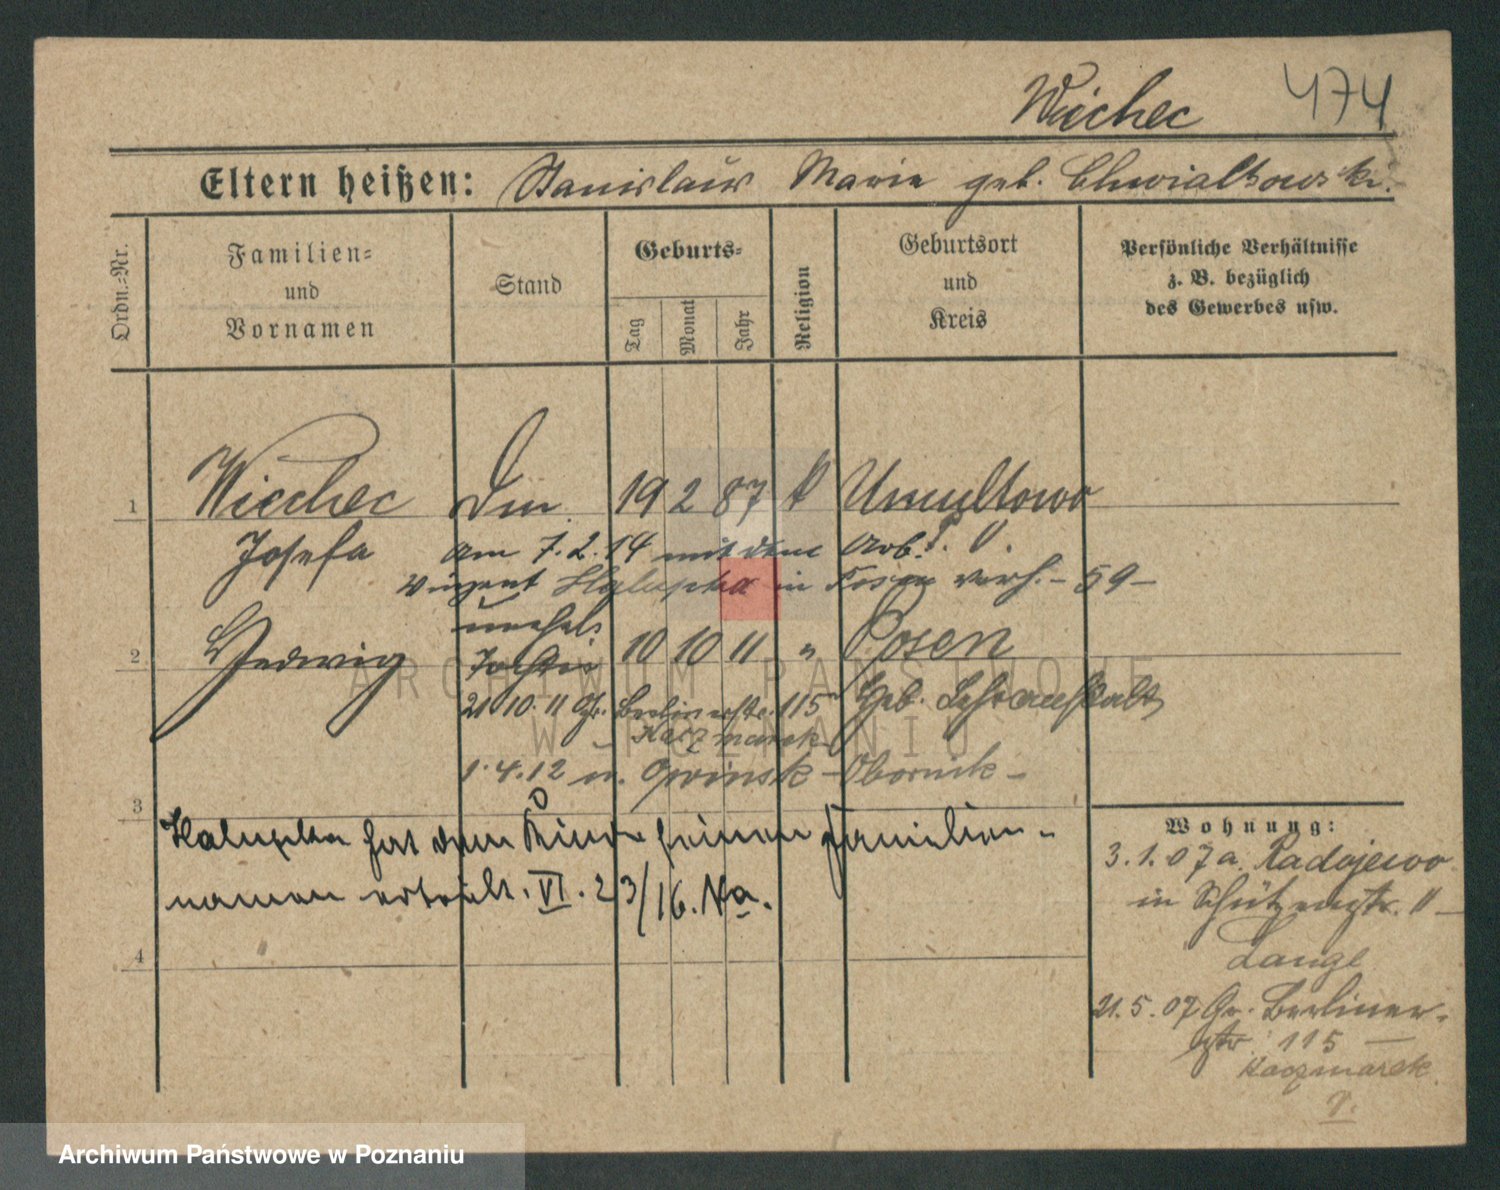 Wiechec 474
Eltern heißen: Stanislaus Marie geb. Chwialkowski.
Ordn.=Nr.
Familien= und Vornamen
Stand
Geburts=
Tag
Monat
Jahr
Religion
Geburtsort und Kreis
Persönliche Verhältnisse z. B. bezüglich des Gewerbes usw.
1 Wiechec Dm. 19 2 87 k Umultowo
Josefa am 7.2.14 mit dem Arb.
in Posen verh. – 59 –
unehel.
2 Hedwig Tochter 10 10 11 " Posen
21.10.11 Gr. Berlinerstr. 115 Heb. Lehranstalt
Kaczmarek
1.4.12 n. Owinsk – Obornik –
3 Halupka hat dem Kinde seinen Familien-
namen erteilt. VI. 23/16. Na.
4
Wohnung:
3.1.07 a. Radojewo
in Schützenstr. 11 –
Lange
21.5.07 Gr. Berliner-
str. 115 –
Kaczmarek
ARCHIWUM PAŃSTWOWE
W POZNANIU
Archiwum Państwowe w Poznaniu